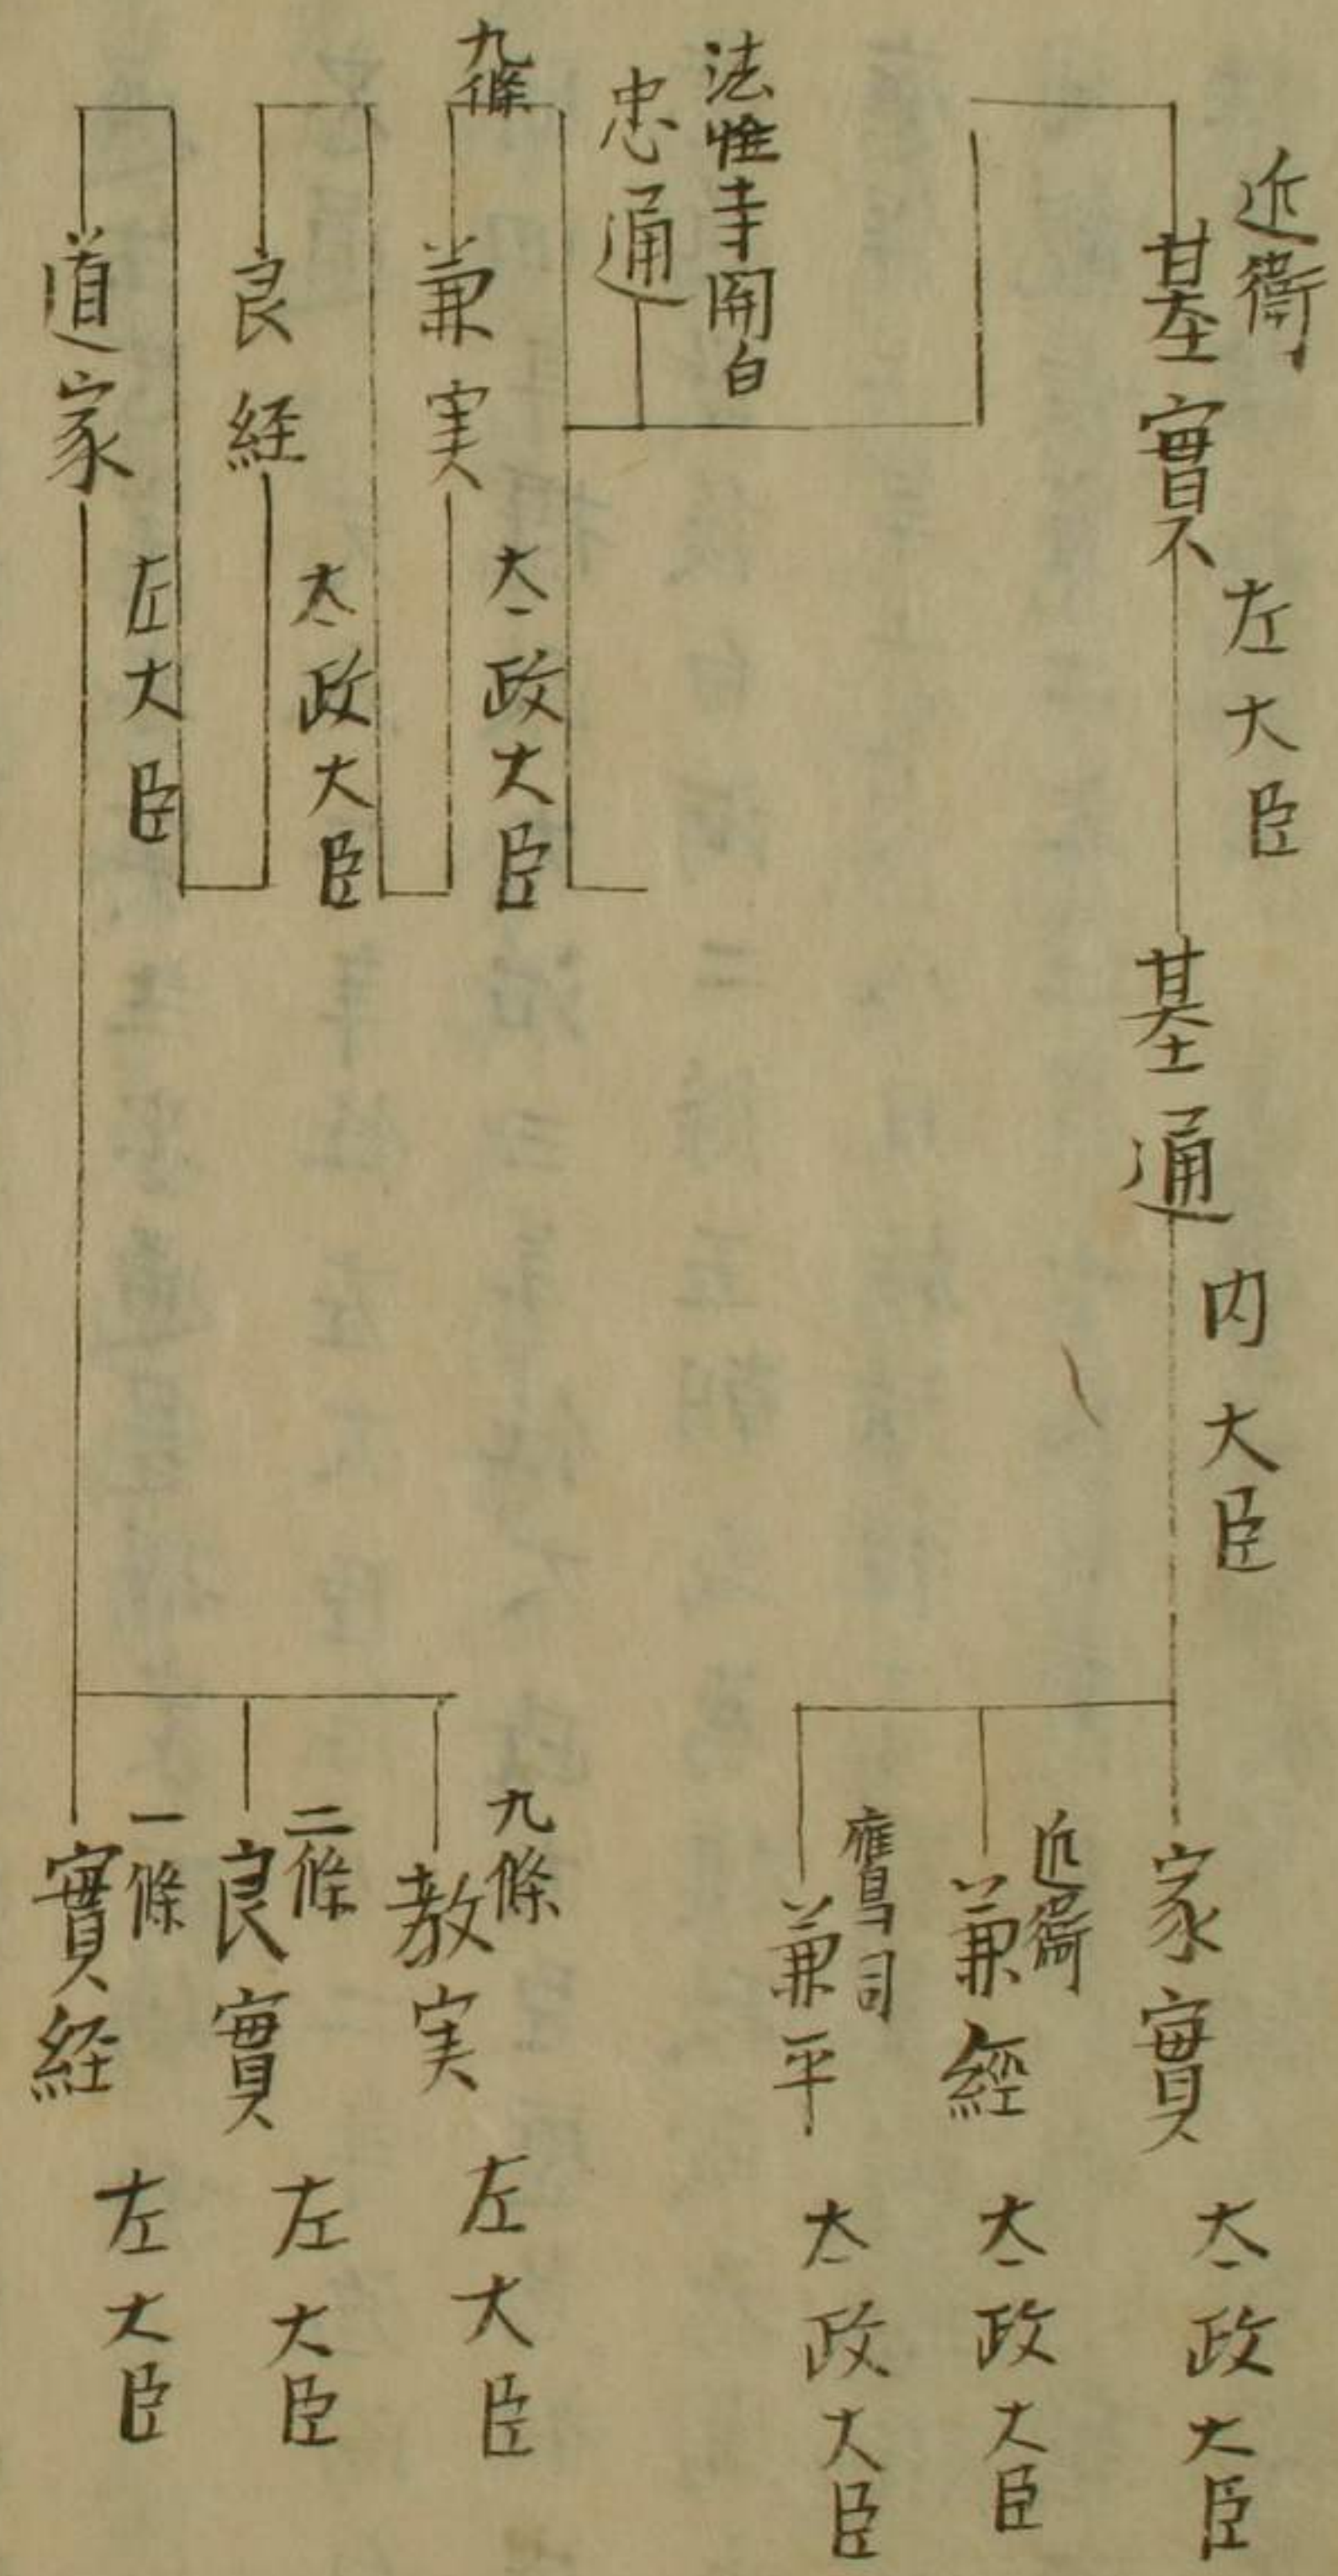 近衞
基實
左大臣
基通
内大臣
家實
太政大臣
近衞
兼經
太政大臣
鷹司
兼平
太政大臣
法性寺関白
忠通
九條
兼実
太政大臣
良経
太政大臣
道家
左大臣
九條
教実
左大臣
二條
良實
左大臣
一條
實経
左大臣